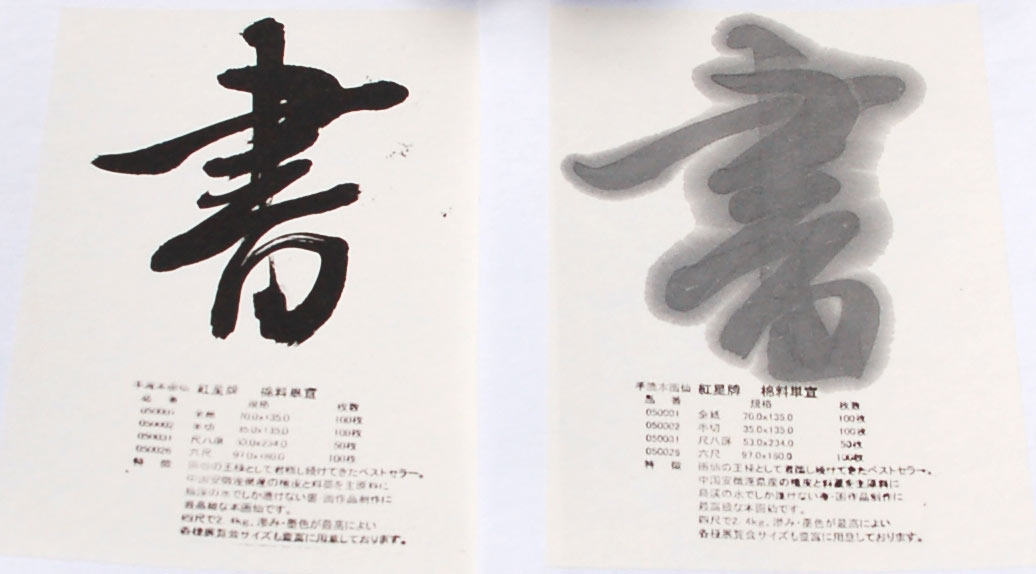 書
手漉本画仙 紅星牌 棉料単宣
品番 規格 枚数
050001 全紙 70.0x135.0 100枚
050002 半切 35.0x135.0 100枚
050031 尺八屏 53.0x234.0 50枚
050026 六尺 97.0x180.0 100枚
特徴 画仙の王様として君臨し続けてきたベストセラー。
中国安徽 県産の 皮と料藁を主原料に
渓の水でしか漉けない書・画作品制作に
最高級な本画仙です。
四尺で2.4kg、滲み・墨色が最高によい
各種展覧会サイズも豊富に用意しております。
書
手漉本画仙 紅星牌 棉料単宣
品番 規格 枚数
050001 全紙 70.0x135.0 100枚
050002 半切 35.0x135.0 100枚
050031 尺八屏 53.0x234.0 50枚
050026 六尺 97.0x180.0 100枚
特徴 画仙の王様として君臨し続けてきたベストセラー。
中国安徽 県産の 皮と料藁を主原料に
渓の水でしか漉けない書・画作品制作に
最高級な本画仙です。
四尺で2.4kg、滲み・墨色が最高によい
各種展覧会サイズも豊富に用意しております。